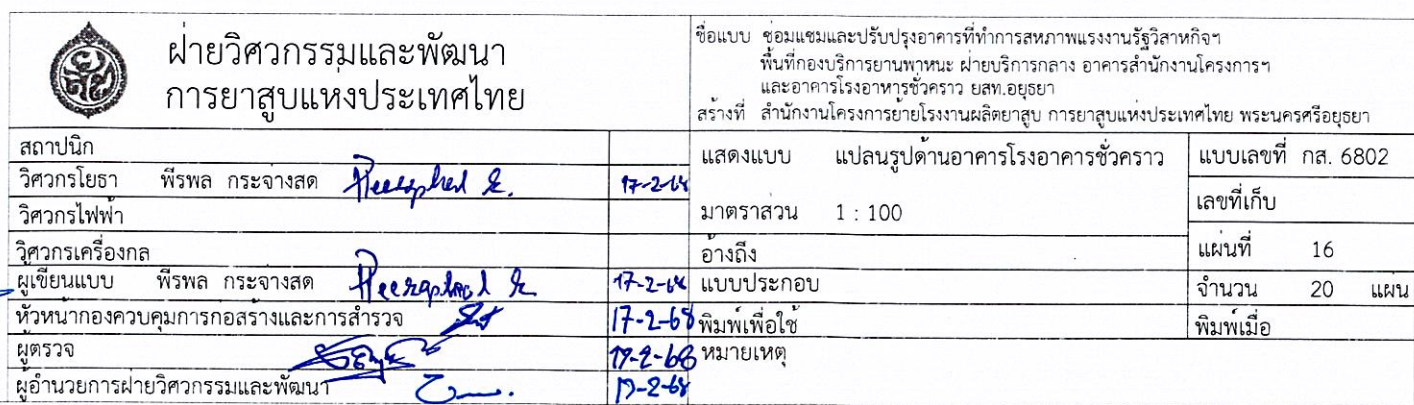 ฝ่ายวิศวกรรมและพัฒนา
การยาสูบแห่งประเทศไทย
ชื่อแบบ ซ่อมแซมและปรับปรุงอาคารที่ทำการสหภาพแรงงานรัฐวิสาหกิจฯ
พื้นที่กองบริการยานพาหนะ ฝ่ายบริการกลาง อาคารสำนักงานโครงการฯ
และอาคารโรงอาหารชั่วคราว ยสท.อยุธยา
สร้างที่ สำนักงานโครงการย้ายโรงงานผลิตยาสูบ การยาสูบแห่งประเทศไทย พระนครศรีอยุธยา
สถาปนิก
วิศวกรโยธา พีรพล กระจ่างสด 17-2-68
วิศวกรไฟฟ้า
วิศวกรเครื่องกล
ผู้เขียนแบบ พีรพล กระจ่างสด 17-2-68
หัวหน้ากองควบคุมการก่อสร้างและการสำรวจ 17-2-68
ผู้ตรวจ
ผู้อำนวยการฝ่ายวิศวกรรมและพัฒนา
แสดงแบบ แปลนรูปด้านอาคารโรงอาคารชั่วคราว
มาตราส่วน 1 : 100
อ้างถึง
แบบประกอบ
พิมพ์เพื่อใช้
หมายเหตุ
แบบเลขที่ กส. 6802
เลขที่เก็บ
แผ่นที่ 16
จำนวน 20 แผ่น
พิมพ์เมื่อ